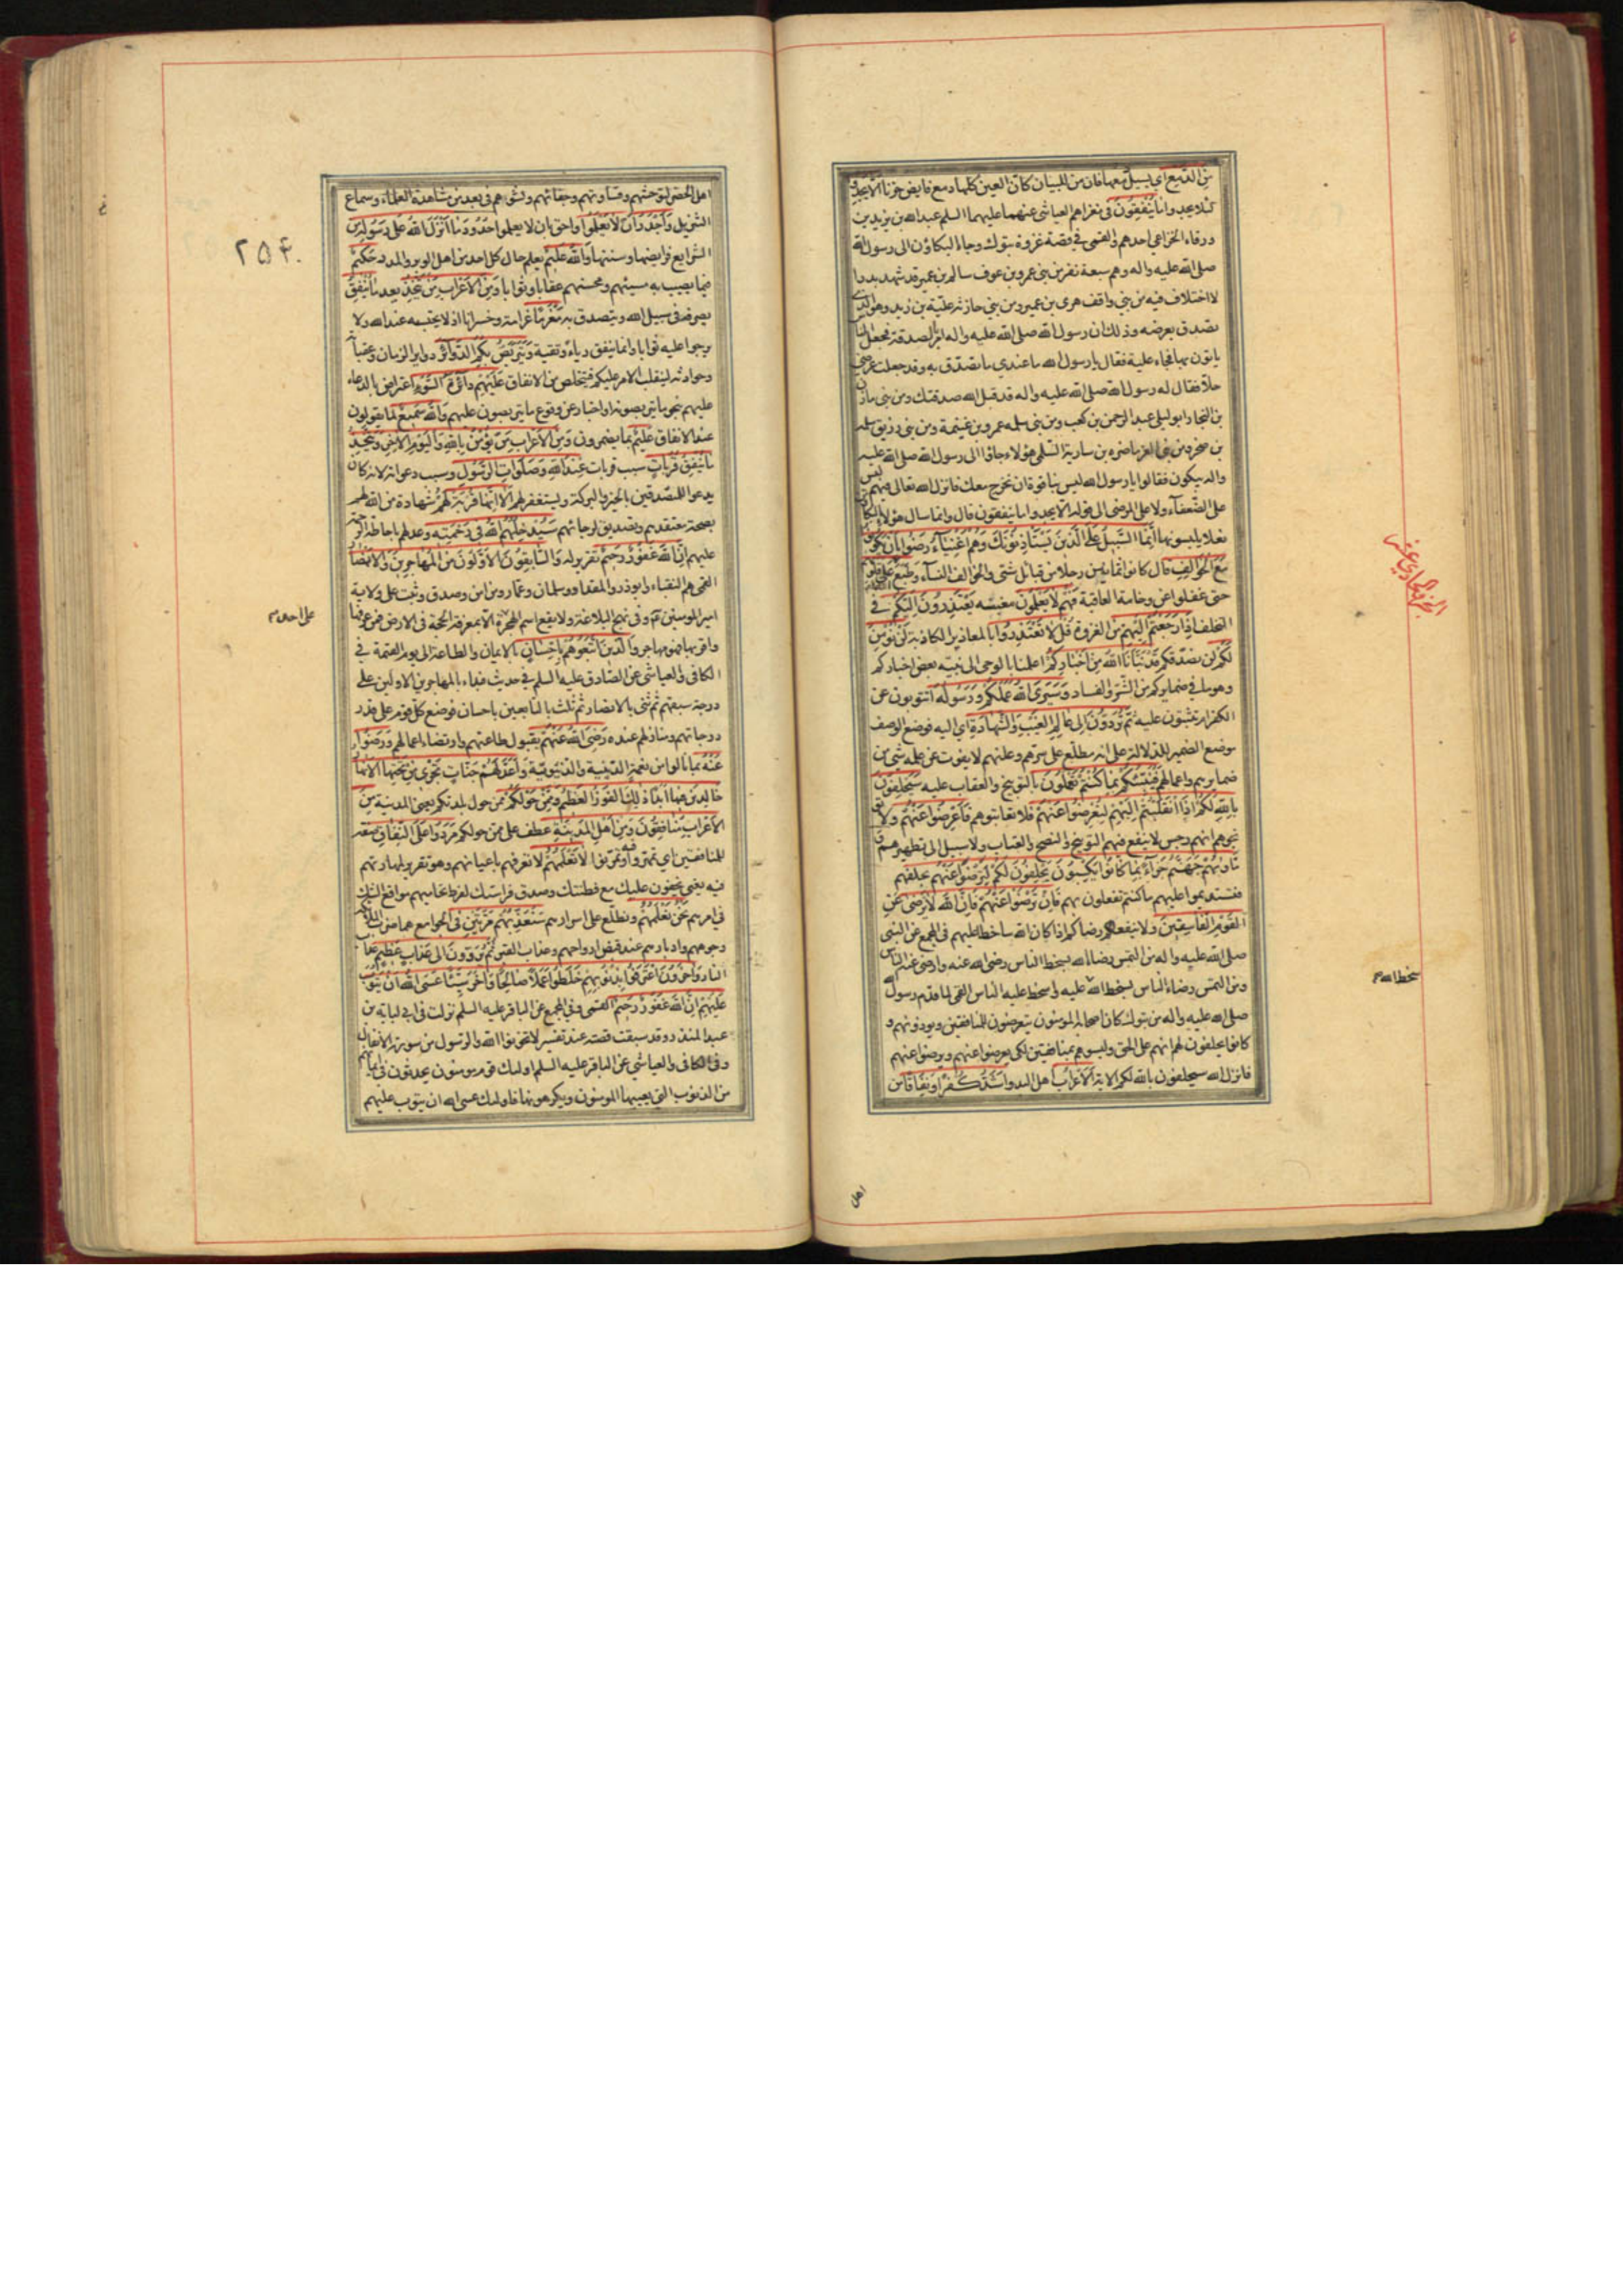 مِنَ الدَّمْعِ اي يسيل دمعها فان من للبيان كأن العين كلها دمع فايض حزنا أَلَّا يَجِدُوا
لئلا يجدوا مَا يُنْفِقُونَ في مغزاهم العياشي عنهما عليهما السلم عبدالله بن يزيد بن
ورقاء الخزاعي احدهم والقمي في قصة غزوة تبوك وجاء البكاؤن الى رسول الله
صلى الله عليه واله وهم سبعة نفر من بني عمرو بن عوف سالم بن عمير قد شهد بدرا
لا اختلاف فيه من بني واقف هرمي بن عمير ومن بني حارثة علية بن زيد وهو الذي
تصدق بعرضه وذلك ان رسول الله صلى الله عليه واله امر بالصدقة فجعل الناس
ياتون بها فجاء علية فقال يا رسول الله ما عندي ما تصدق به وقد جعلت عرضي
حلا فقال له رسول الله صلى الله عليه واله قد قبل الله صدقتك ومن بني مازن
بن النجار ابو ليلى عبد الرحمن بن كعب ومن بني سلمه عمرو بن غنيمة ومن بني زريق سلمه
بن صخر ومن بني العرباض بن سارية السلمي هؤلاء جاؤا الى رسول الله صلى الله عليه
واله يبكون فقالوا يا رسول الله ليس بنا قوة ان نخرج معك فانزل الله تعالى فيهم ليس
على الضعفاء ولا على المرضى الى قوله الا يجدوا ما ينفقون قال وانما سال هؤلاء البكاؤن
نعلا يلبسونها إِنَّمَا السَّبِيلُ عَلَى الَّذِينَ يَسْتَأْذِنُونَكَ وَهُمْ أَغْنِيَاءُ رَضُوا بِأَنْ يَكُونُوا
مَعَ الْخَوَالِفِ قال كانوا ثمانين رجلا من قبائل شتى والخوالف النساء وَطَبَعَ اللهُ عَلَى قُلُوبِهِمْ
حتى غفلوا عن وخامة العاقبة فَهُمْ لَا يَعْلَمُونَ مغبته يَعْتَذِرُونَ إِلَيْكُمْ في
التخلف إِذَا رَجَعْتُمْ إِلَيْهِمْ من الغزوة قُلْ لَا تَعْتَذِرُوا بالمعاذير الكاذبة لَنْ نُؤْمِنَ
لَكُمْ لن نصدقكم قَدْ نَبَّأَنَا اللهُ مِنْ أَخْبَارِكُمْ اعلمنا بالوحي الى نبيه بعض اخباركم
وهو ما في ضمايركم من الشر والفساد وَسَيَرَى اللهُ عَمَلَكُمْ وَرَسُولُهُ اتتوبون عن
الكفر ام تثبتون عليه ثُمَّ تُرَدُّونَ إِلَى عَالِمِ الْغَيْبِ وَالشَّهَادَةِ اي اليه فوضع الوصف
موضع الضمير للدلالة على انه مطلع على سرهم وعلنهم لا يفوت عن علمه شئ من
ضمايرهم واعمالهم فَيُنَبِّئُكُمْ بِمَا كُنْتُمْ تَعْمَلُونَ بالتوبيخ والعقاب عليه سَيَحْلِفُونَ
بِاللهِ لَكُمْ إِذَا انْقَلَبْتُمْ إِلَيْهِمْ لِتُعْرِضُوا عَنْهُمْ فلا تعاتبوهم فَأَعْرِضُوا عَنْهُمْ ولا
توبخوهم انهم رجس لا ينفع فيهم التوبيخ والنصح والعتاب ولا سبيل الى تطهيرهم
وَمَأْوَاهُمْ جَهَنَّمُ جَزَاءً بِمَا كَانُوا يَكْسِبُونَ يَحْلِفُونَ لَكُمْ لِتَرْضَوْا عَنْهُمْ بحلفهم
فتستديموا عليهم ما كنتم تفعلون بهم فَإِنْ تَرْضَوْا عَنْهُمْ فَإِنَّ اللهَ لَا يَرْضَى عَنِ
الْقَوْمِ الْفَاسِقِينَ ولا ينفعهم رضاكم اذا كان الله ساخطا عليهم في المجمع عن النبي
صلى الله عليه واله من التمس رضا الله بسخط الناس رضى الله عنه وارضى عنه الناس
ومن التمس رضاء الناس بسخط الله عليه واسخط عليه الناس القمي لما قدم رسول الله
صلى الله عليه واله من تبوك كان اصحابه المؤمنون يتعرضون للمنافقين ويوذونهم و
كانوا يحلفون لهم انهم على الحق وليسوهم بمنافقين لكي يعرضوا عنهم ويرضوا عنهم
فانزل الله سيحلفون بالله لكم الاية الْأَعْرَابُ اهل البدو أَشَدُّ كُفْرًا وَنِفَاقًا من
اهل
الجزو الحادي عشر
سخط الله م
۲۵۴
اهل الحضر لتوحشهم وقساوتهم وجفائهم ونشوهم في بعد من مشاهدة العلماء وسماع
التنزيل وَأَجْدَرُ أَنْ لَا يَعْلَمُوا واحق بان لا يعلموا حُدُودَ مَا أَنْزَلَ اللهُ عَلَى رَسُولِهِ من
الشرايع فرايضها وسننها وَاللهُ عَلِيمٌ يعلم حال كل احد من اهل الوبر والمدر حَكِيمٌ
فيما يصيب به مسيئهم ومحسنهم عقابا وثوابا وَمِنَ الْأَعْرَابِ مَنْ يَتَّخِذُ يعد مَا يُنْفِقُ
يصرفه في سبيل الله ويتصدق به مَغْرَمًا غرامة وخسرانا اذ لا يحتسبه عند الله ولا
يرجوا عليه ثوابا وانما ينفق رياء وتقية وَيَتَرَبَّصُ بِكُمُ الدَّوَائِرَ دواير الزمان وعقباته
وحوادثه لينقلب الامر عليكم فيتخلص من الانفاق عَلَيْهِمْ دَائِرَةُ السَّوْءِ اعتراض بالدعاء
عليهم بنحو ما يتربصونه او اخبار عن وقوع ما يتربصون عليهم وَاللهُ سَمِيعٌ لما يقولون
عند الانفاق عَلِيمٌ بما يضمرون وَمِنَ الْأَعْرَابِ مَنْ يُؤْمِنُ بِاللهِ وَالْيَوْمِ الْآخِرِ وَيَتَّخِذُ
مَا يُنْفِقُ قُرُبَاتٍ سبب قربات عِنْدَ اللهِ وَصَلَوَاتِ الرَّسُولِ وسبب دعواته لانه كان
يدعوا للمتصدقين بالخير والبركة ويستغفر لهم أَلَا إِنَّهَا قُرْبَةٌ لَهُمْ شهادة من الله لهم
بصحة معتقدهم وتصديق لرجائهم سَيُدْخِلُهُمُ اللهُ فِي رَحْمَتِهِ وعد لهم باحاطة الرحمة
عليهم إِنَّ اللهَ غَفُورٌ رَحِيمٌ تقرير له وَالسَّابِقُونَ الْأَوَّلُونَ مِنَ الْمُهَاجِرِينَ وَالْأَنْصَارِ
القمي هم النقباء وابوذر والمقداد وسلمان وعمار ومن امن وصدق وثبت على ولاية
امير المومنين ع وفي نهج البلاغة ولا يقع اسم الهجرة الا بمعرفة الحجة في الارض فمن عرفها
واقر بها فهو مهاجر وَالَّذِينَ اتَّبَعُوهُمْ بِإِحْسَانٍ بالايمان والطاعة الى يوم القيمة في
الكافي والعياشي عن الصادق عليه السلم في حديث فبداء بالمهاجرين الاولين على
درجة سبقهم ثم ثنى بالانصار ثم ثلث بالتابعين باحسان فوضع كل قوم على قدر
درجاتهم ومنازلهم عنده رَضِيَ اللهُ عَنْهُمْ بقبول طاعتهم وارتضاء اعمالهم وَرَضُوا
عَنْهُ بما نالوا من نعمه الدينية والدنيوية وَأَعَدَّ لَهُمْ جَنَّاتٍ تَجْرِي مِنْ تَحْتِهَا الْأَنْهَارُ
خَالِدِينَ فِيهَا أَبَدًا ذَلِكَ الْفَوْزُ الْعَظِيمُ وَمِمَّنْ حَوْلَكُمْ ممن حول بلدتكم يعني المدينة مِنَ
الْأَعْرَابِ مُنَافِقُونَ وَمِنْ أَهْلِ الْمَدِينَةِ عطف على ممن حولكم مَرَدُوا عَلَى النِّفَاقِ صفة
للمنافقين اي تمهروا فيه وتمرنوا لَا تَعْلَمُهُمْ لا تعرفهم باعيانهم وهو تقرير لمهارتهم
فيه يعني يخفون عليك مع فطنتك وصدق فراستك لفرط تحاميهم مواقع الشك
في امرهم نَحْنُ نَعْلَمُهُمْ ونطلع على اسرارهم سَنُعَذِّبُهُمْ مَرَّتَيْنِ في الجوامع هما ضرب الملائكة
وجوههم وادبارهم عند قبض ارواحهم وعذاب القبر ثُمَّ يُرَدُّونَ إِلَى عَذَابٍ عَظِيمٍ عذاب
النار وَآخَرُونَ اعْتَرَفُوا بِذُنُوبِهِمْ خَلَطُوا عَمَلًا صَالِحًا وَآخَرَ سَيِّئًا عَسَى اللهُ أَنْ يَتُوبَ
عَلَيْهِمْ إِنَّ اللهَ غَفُورٌ رَحِيمٌ القمي وفي المجمع عن الباقر عليه السلم نزلت في ابي لبابة بن
عبد المنذر وقد سبقت قصته عند تفسير لا تخونوا الله والرسول من سورة الانفال
وفي الكافي والعياشي عن الباقر عليه السلم اولئك قوم مومنون يحدثون في ايمانهم
من الذنوب التي يعيبها المومنون ويكرهونها فاولئك عسى الله ان يتوب عليهم
على احد م